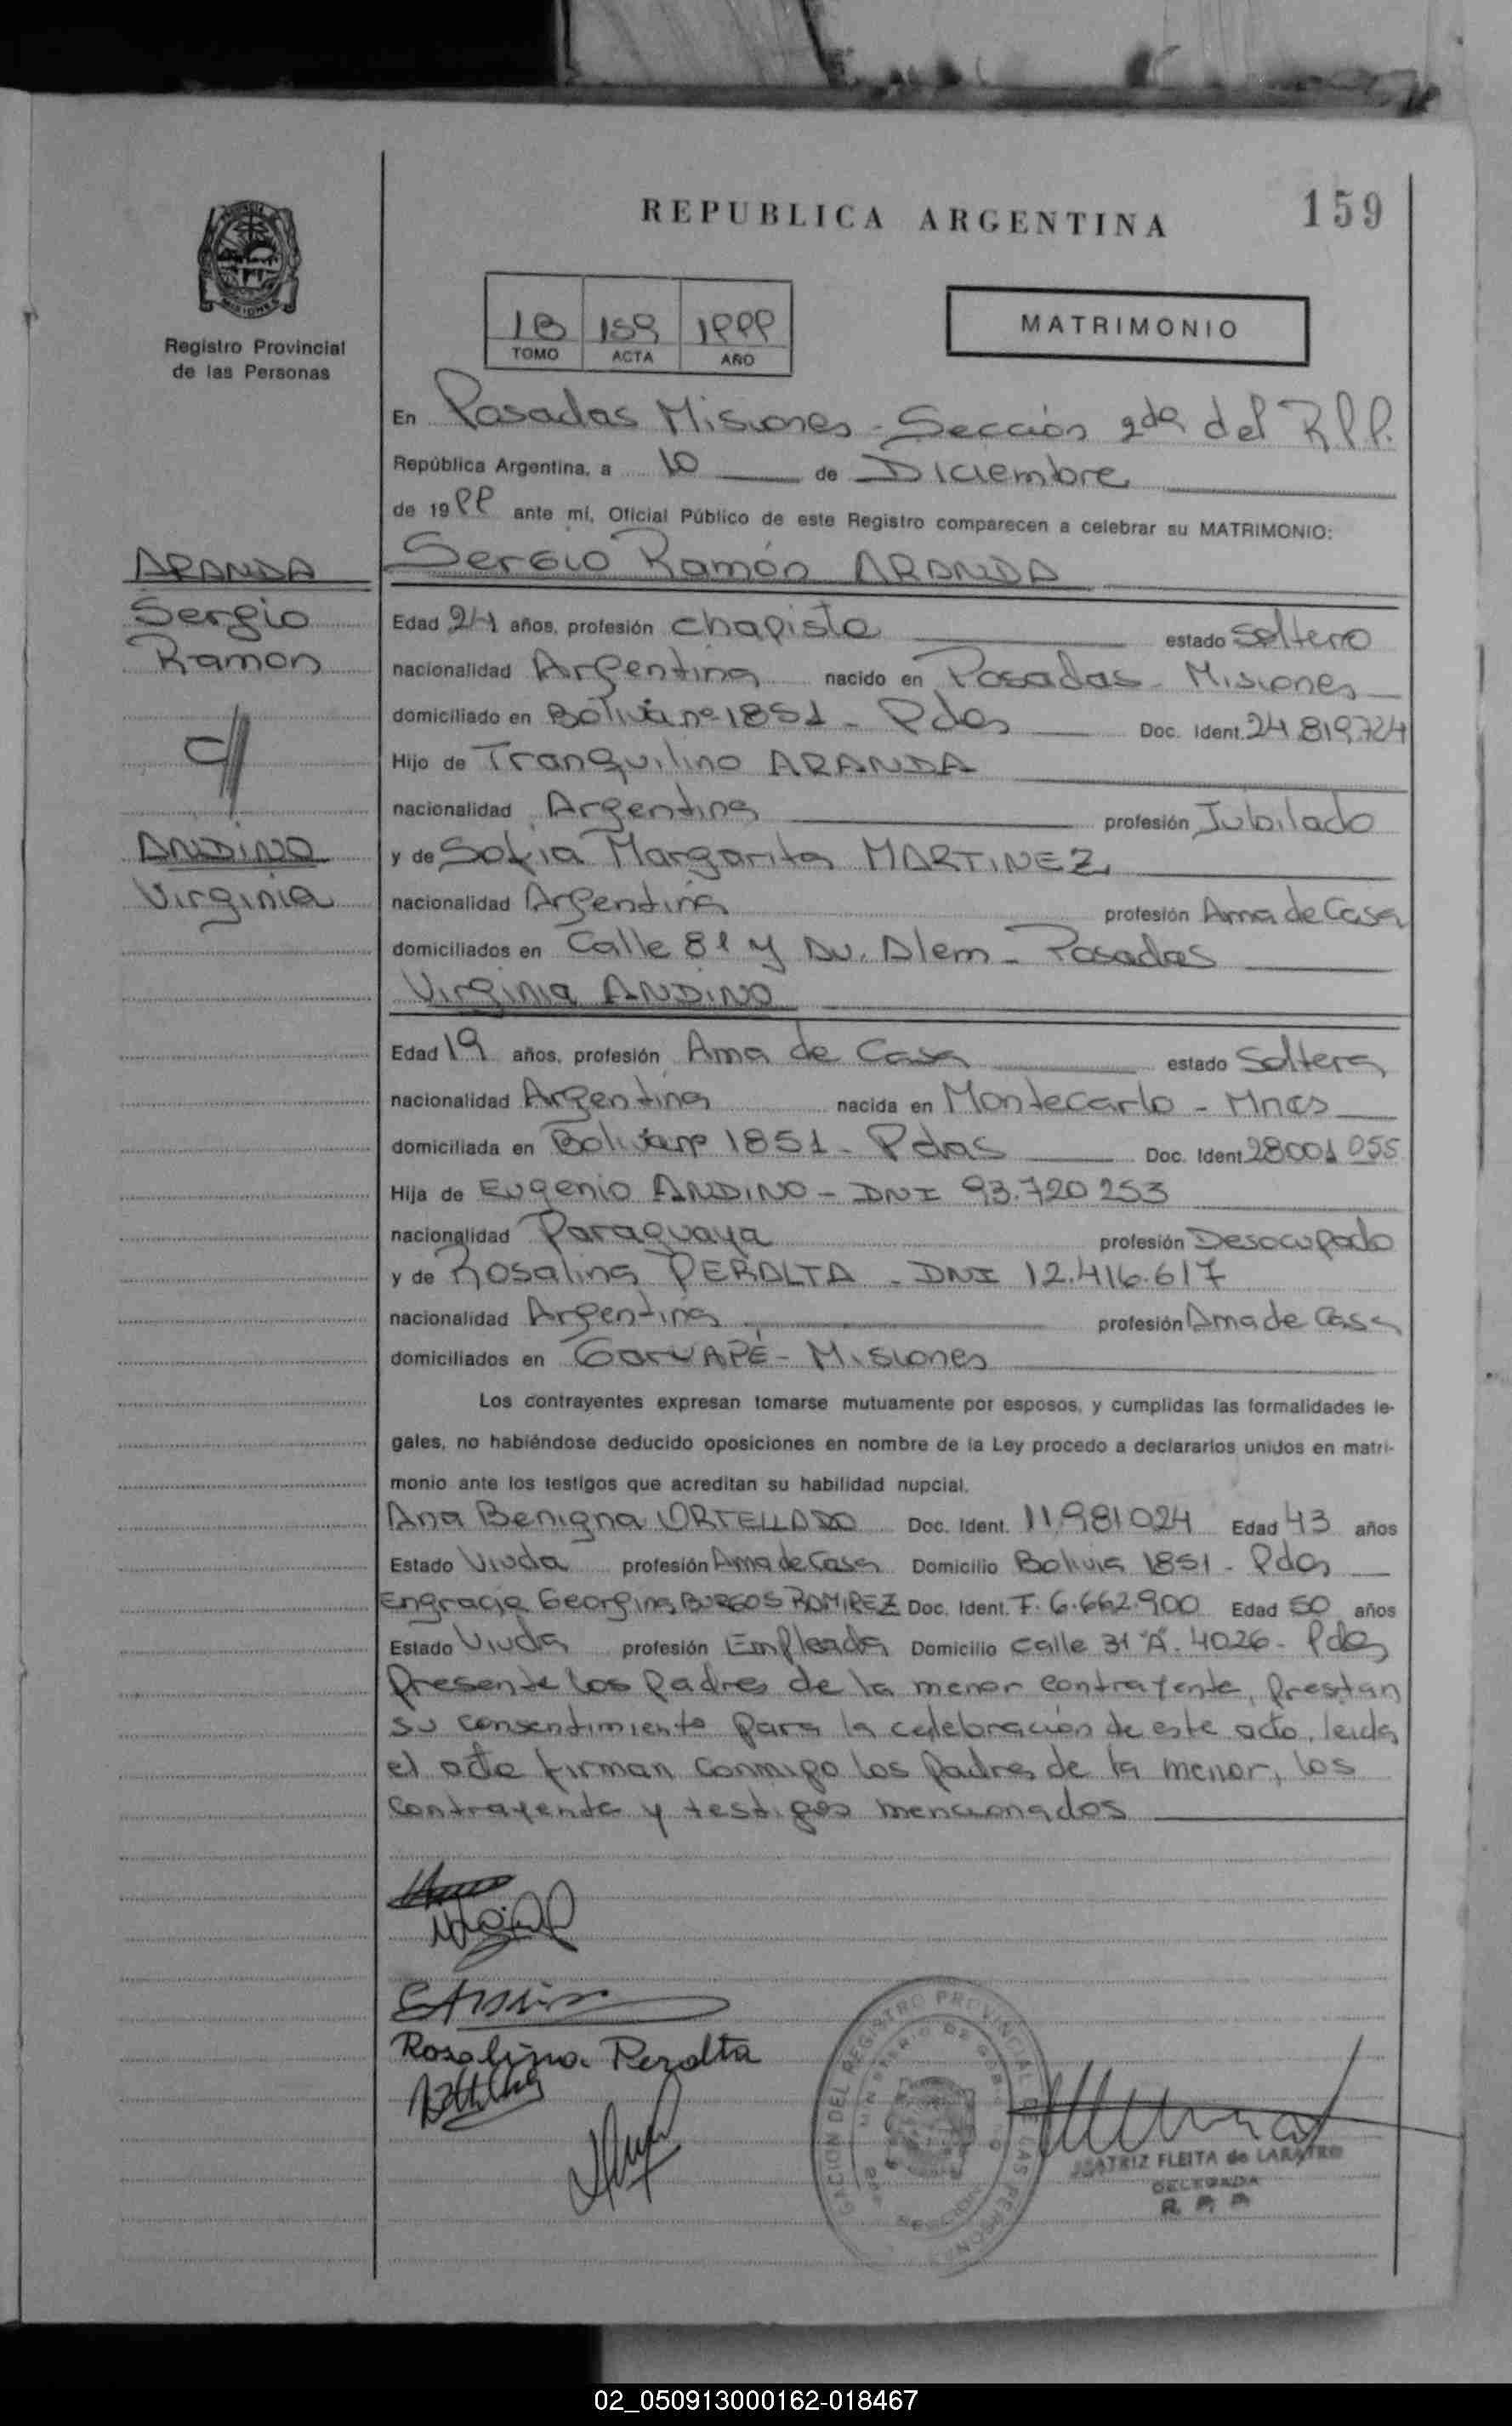 REPUBLICA ARGENTINA
159
Registro Provincial
de las Personas
1B 159 1999
TOMO ACTA AÑO
MATRIMONIO
En Posadas Misiones - Sección 2da del R.P.P.
República Argentina, a 10 de Diciembre
de 1999 ante mí, Oficial Público de este Registro comparecen a celebrar su MATRIMONIO:
ARANDA
Sergio
Ramon
c/
ANDINO
Virginia
Sergio Ramón ARANDA
Edad 24 años, profesión chapista estado Soltero
nacionalidad Argentina nacido en Posadas - Misiones
domiciliado en nº 1851 - Pdas Doc. Ident. 24.819.724
Hijo de Tranquilino ARANDA
nacionalidad Argentina profesión Jubilado
y de Sofia Margarita MARTINEZ
nacionalidad Argentina profesión Ama de Casa
domiciliados en Calle y Av. Alem - Posadas
Virginia ANDINO
Edad 19 años, profesión Ama de Casa estado Soltera
nacionalidad Argentina nacida en Montecarlo - Mnes
domiciliada en 1851 - Pdas Doc. Ident. 28001055
Hija de Eugenio ANDINO - DNI 93.720.253
nacionalidad Paraguaya profesión Desocupado
y de Rosalina PERALTA - DNI 12.416.617
nacionalidad Argentina profesión Ama de Casa
domiciliados en GARUAPÉ - Misiones
Los contrayentes expresan tomarse mutuamente por esposos, y cumplidas las formalidades le-
gales, no habiéndose deducido oposiciones en nombre de la Ley procedo a declararlos unidos en matri-
monio ante los testigos que acreditan su habilidad nupcial.
Ana Benigna ORTELLADO Doc. Ident. 11.981.024 Edad 43 años
Estado Viuda profesión Ama de Casa Domicilio Bolivia 1851 - Pdas
Engracia Georgina BURGOS RAMIREZ Doc. Ident. F. 6.662.900 Edad 50 años
Estado Viuda profesión Empleada Domicilio calle 31 "A". 4026 - Pdas
Presente los Padres de la menor contrayente, Prestan
su consentimiento para la celebración de este acto, leida
el acta firman conmigo los Padres de la menor, los
contrayente y testigos mencionados
Rosalina Peralta
BEATRIZ FLEITA de LABATRO
DELEGADA
R. P. P.
02_050913000162-018467